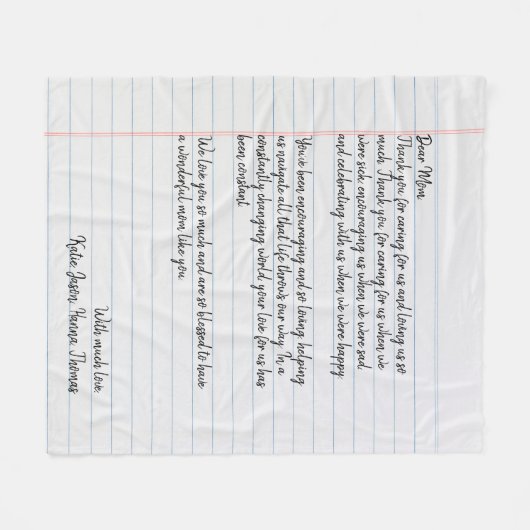 Dear Mom
Thank you for caring for us and loving us so
much. Thank you for caring for us when we
were sick, encouraging us when we were sad
and celebrating with us when we were happy
You've been encouraging and so loving, helping
us navigate all that life throws our way. In a
constantly changing world, your love for us has
been constant
We love you so much and are so blessed to have
a wonderful mom like you
With much love,
Katie, Jason, Hanna, Thomas